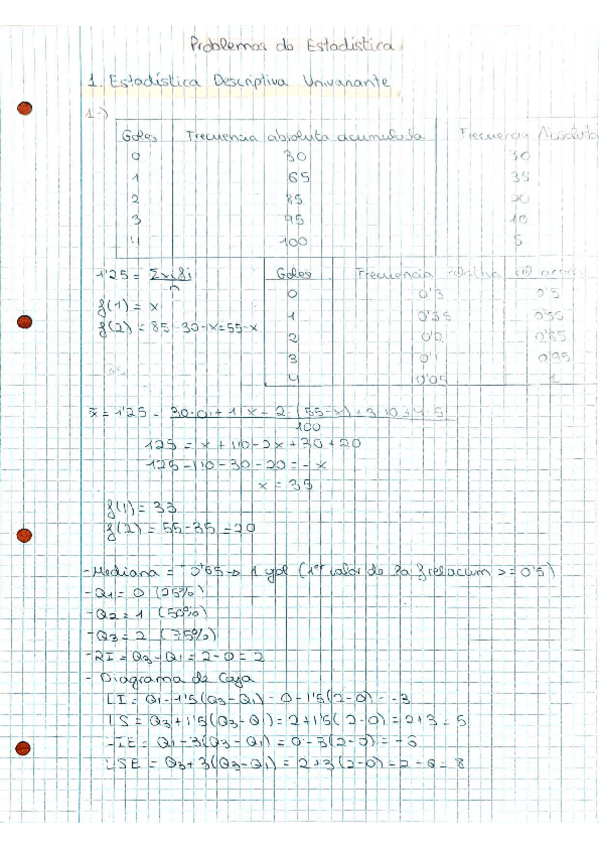 Problemas de Estadística
1. Estadística Descriptiva Univariante
1.)
Goles Frecuencia absoluta acumulada Frecuencia Absoluta
0 30 30
1 65 35
2 85 20
3 95 10
4 100 5
1'25 = Σxifi / n
f(1) = x
f(2) = 85-30-x=55-x
Goles Frecuencia relativa
0 0'3
1 0'35
2 0'2 0'85
3 0'1 0'95
4 0'05 1
x̄ = 1'25 = 30·0+1·x+2·(55-x)+3·10+4·5 / 100
125 = x+110-2x+30+20
125-110-30-20=-x
x = 35
f(1) = 35
f(2) = 55-35=20
-Mediana = 0'65→ 1 gol (1er valor de la f relacum >= 0'5)
-Q1= 0 (25%)
-Q2= 1 (50%)
-Q3= 2 (75%)
-RI = Q3-Q1 = 2-0 = 2
- Diagrama de Caja
LI = Q1-1'5(Q3-Q1) = 0-1'5(2-0) = -3
LS = Q3+1'5(Q3-Q1) = 2+1'5(2-0) = 2+3 = 5
LIE = Q1-3(Q3-Q1) = 0-3(2-0) = -6
LSE = Q3+3(Q3-Q1) = 2+3(2-0) = 2+6 = 8